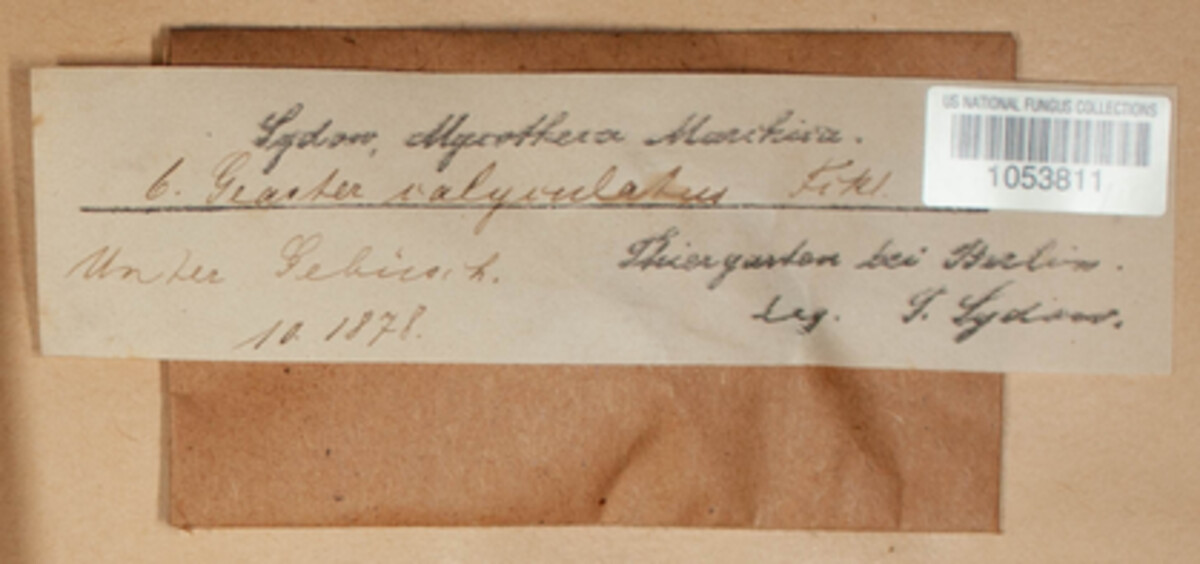 US NATIONAL FUNGUS COLLECTIONS
1053811
Sydow, Mycotheca Marchica.
6. Geaster calyculatus Fckl.
Unter Gebüsch.
10. 1878.
Thiergarten bei Berlin.
leg. P. Sydow.